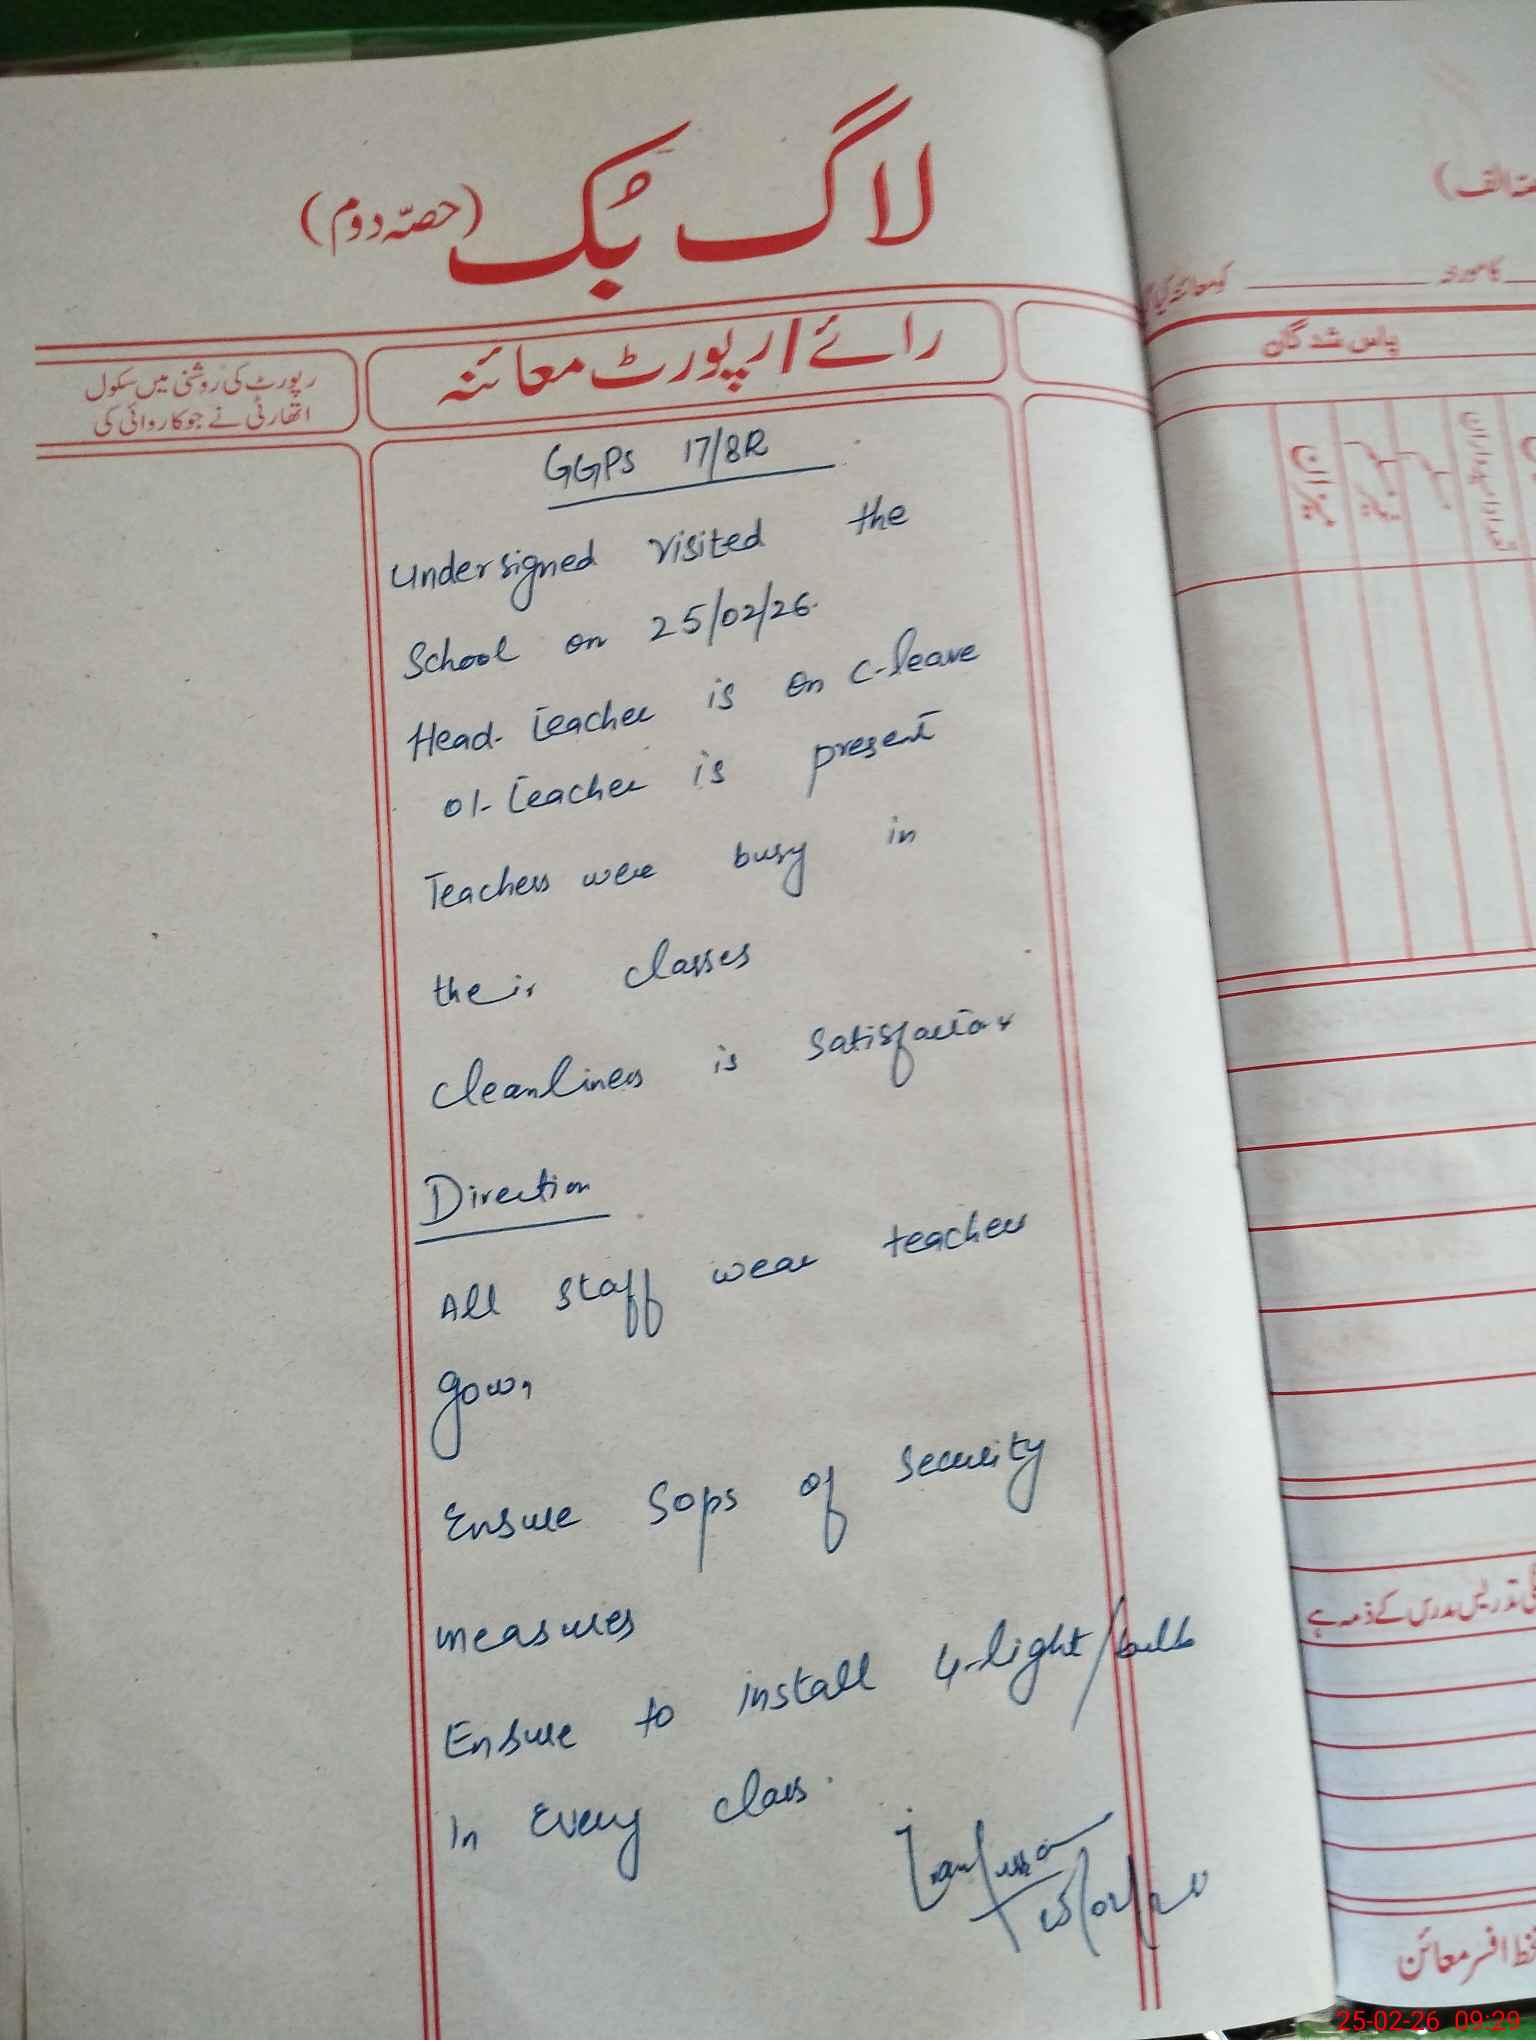 لاگ بُک (حصّہ دوم)
رائے / رپورٹ معائنہ
رپورٹ کی روشنی میں سکول
اتھارٹی نے جو کاروائی کی
GGPS 17/8R
Undersigned visited the
School on 25/02/26.
Head-teacher is on C-leave
01-teacher is present
Teachers were busy in
their classes
cleanliness is satisfactory
Direction
All staff wear teacher
gown
Ensure Sops of security
measures
Ensure to install 4-light/bulb
In Every class.
کا مورخہ
کو معائنہ کیا
پاس شدگان
میزان
تدریس مدرس کے ذمہ ہے
افسر معائن
25-02-26 09:29